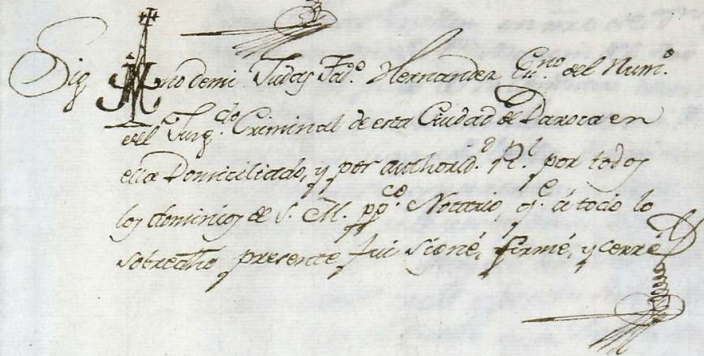 Sig no de mi Judas Tad.º Hernandez Es.no del Num.º
del Juzg.do Criminal de esta Ciudad de Daroca en
ella Domiciliado, y por authorid.d R.l por todos
los dominios de S. M. pp.co Notario, q.e á todo lo
sobredho presente fui signé, firmé, y cerré